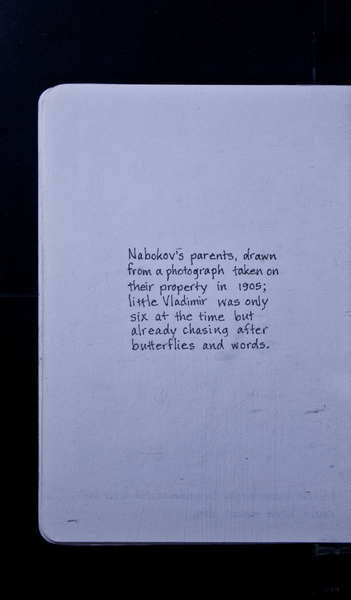 Nabokov's parents, drawn
from a photograph taken on
their property in 1905;
little Vladimir was only
six at the time but
already chasing after
butterflies and words.